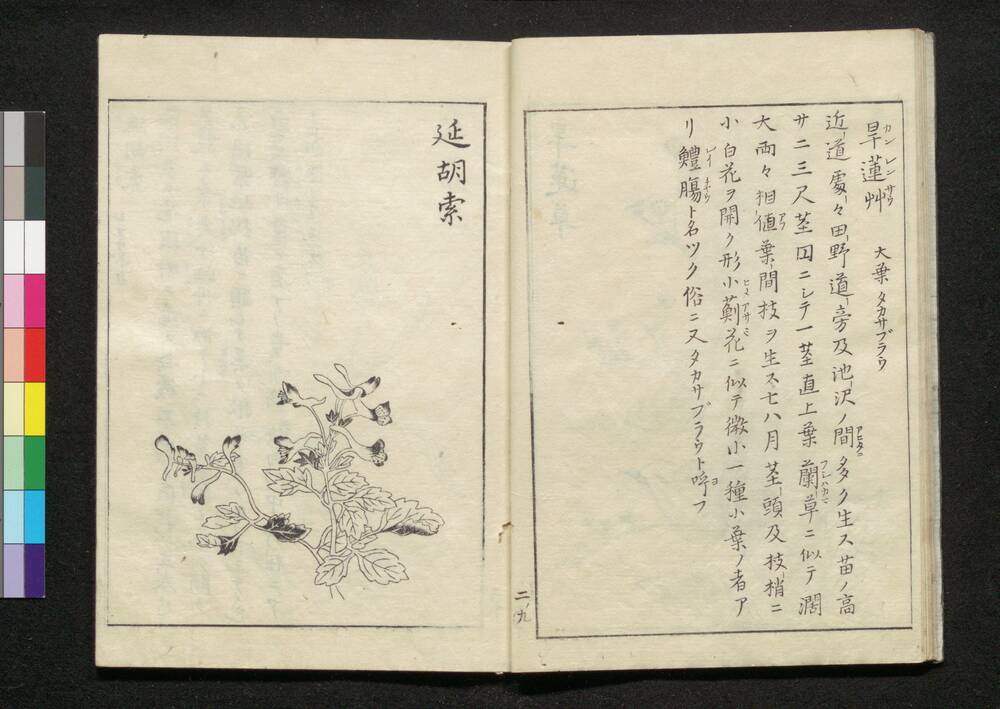 旱蓮艸 大葉タカサブラウ
カンレンサウ
近道處々田野道旁及池沢ノ間多ク生ス苗ノ高
アヒダニ
サ二三尺茎囚ニシテ一茎直上葉蘭草ニ似テ濶
フジバカマ
大両々相値葉間枝ヲ生ス七八月茎頭及枝梢ニ
アフ
小白花ヲ開ク形小薊花ニ似テ微小一種小葉ノ者ア
ヒメアザミ
リ鱧膓ト名ツク俗ニ又タカサブラウト呼フ
レイ
ヨ
二ノ九
延胡索